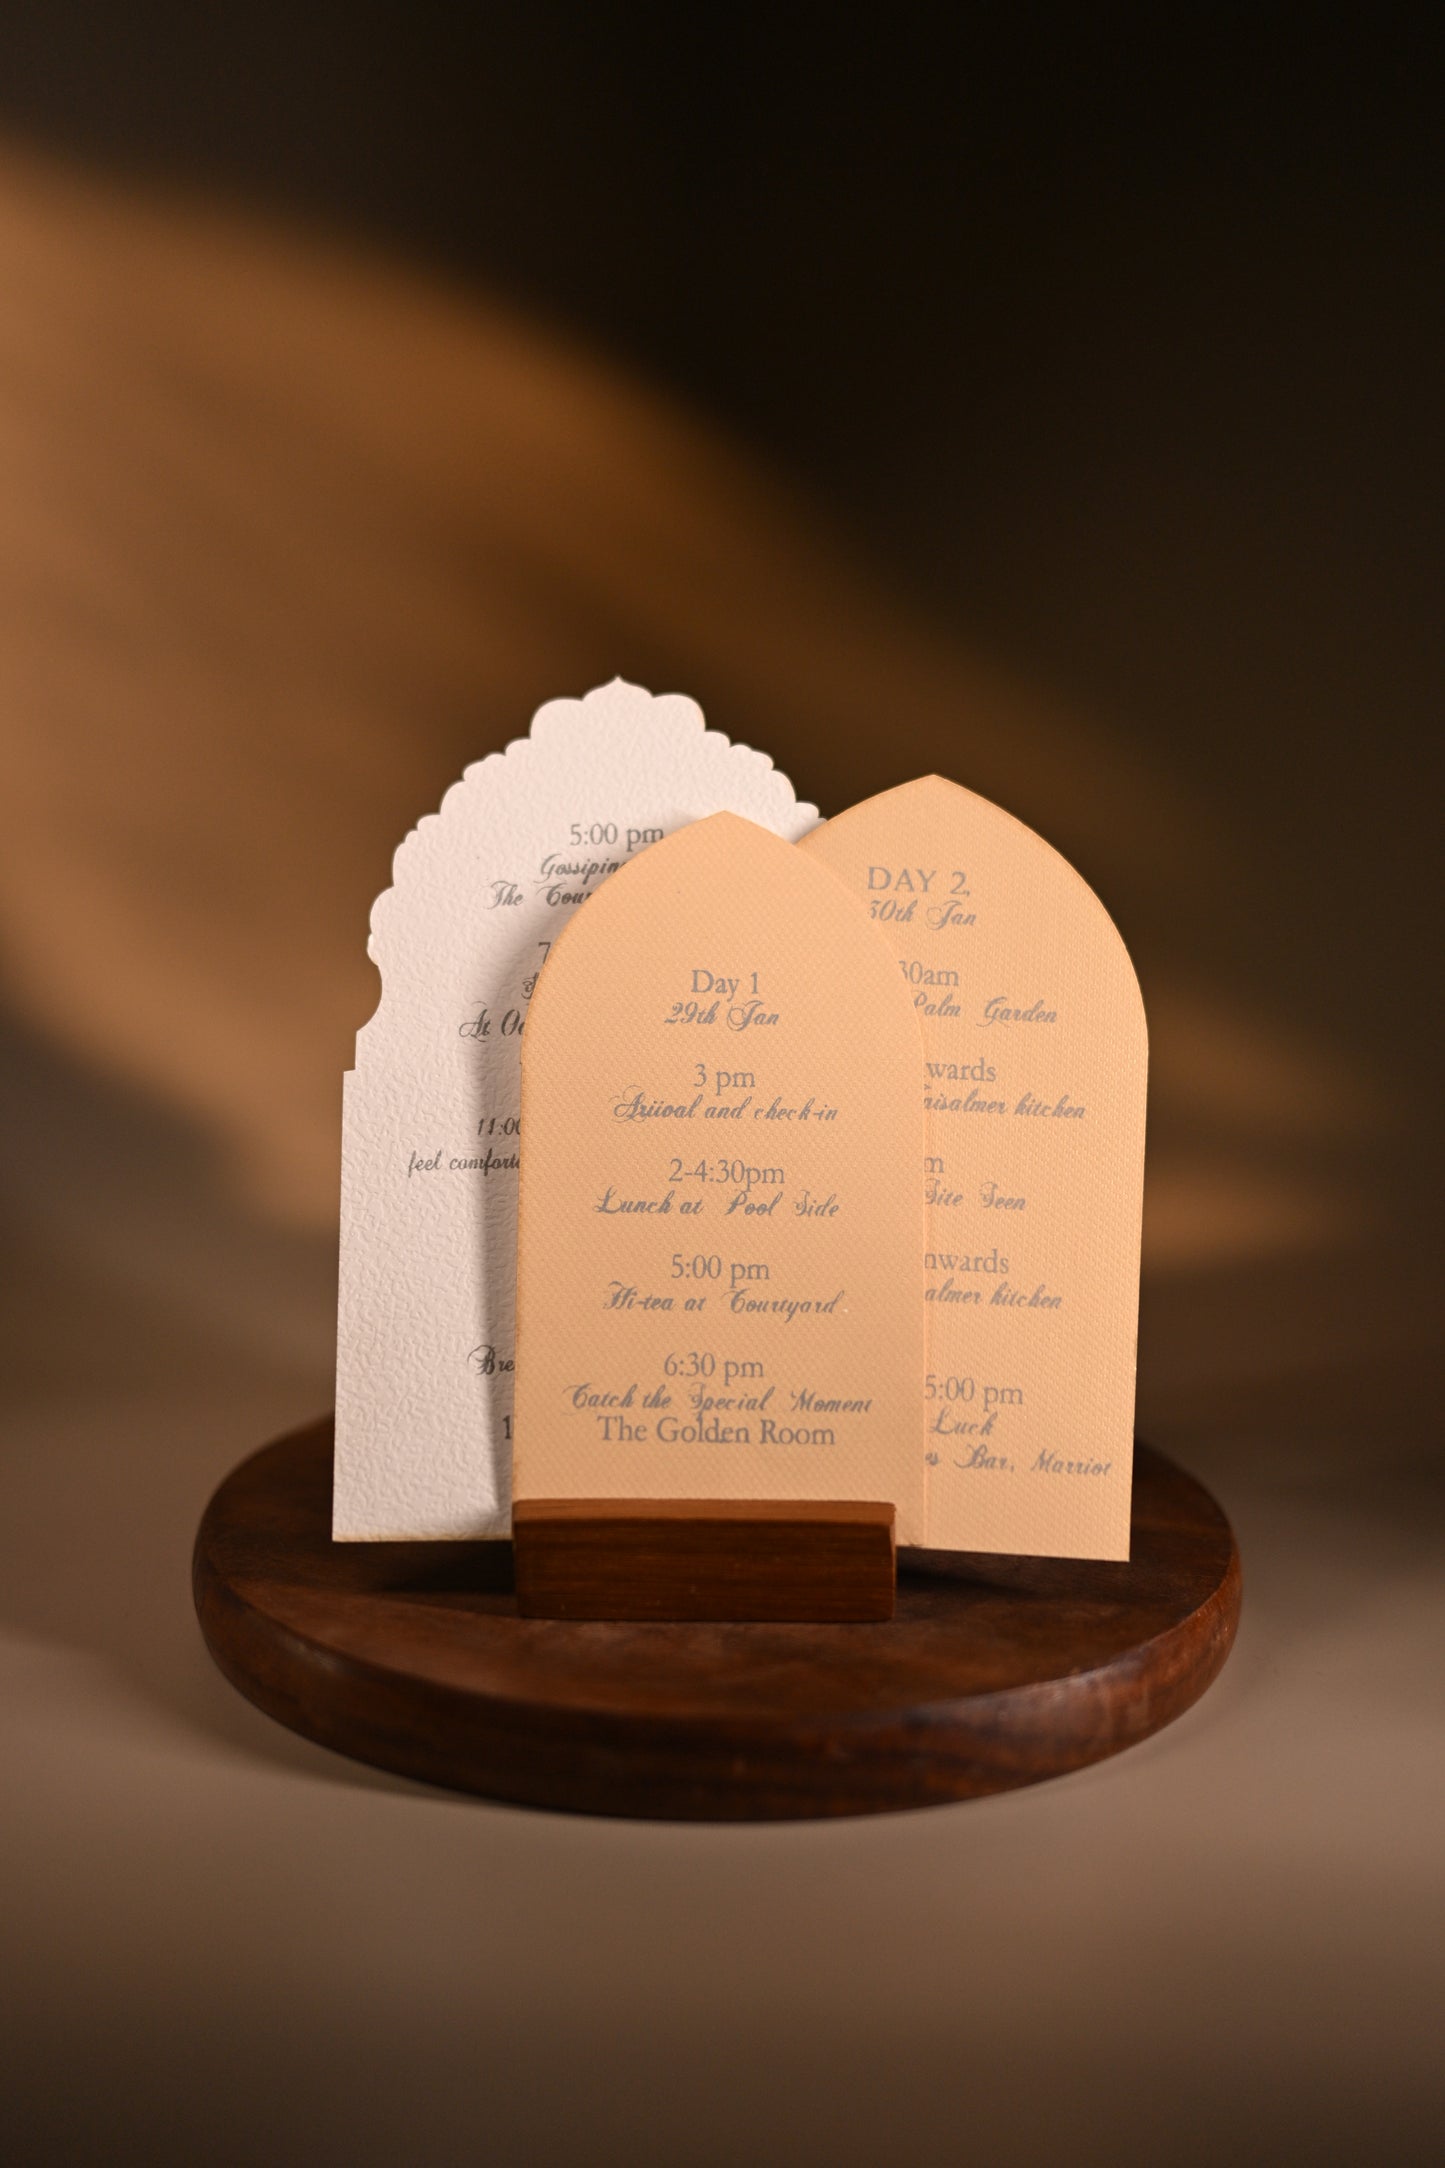 5:00 pm
The
At
11:00
feel
Day 1
29th Jan
3 pm
Ariival and check-in
2-4:30pm
Lunch at Pool Side
5:00 pm
Hi-tea at Courtyard
6:30 pm
Catch the Special Moment
The Golden Room
DAY 2,
30th Jan
30am
Palm Garden
wards
aisalmer kitchen
m
Site Seen
nwards
almer kitchen
5:00 pm
Luck
es Bar, Marriot